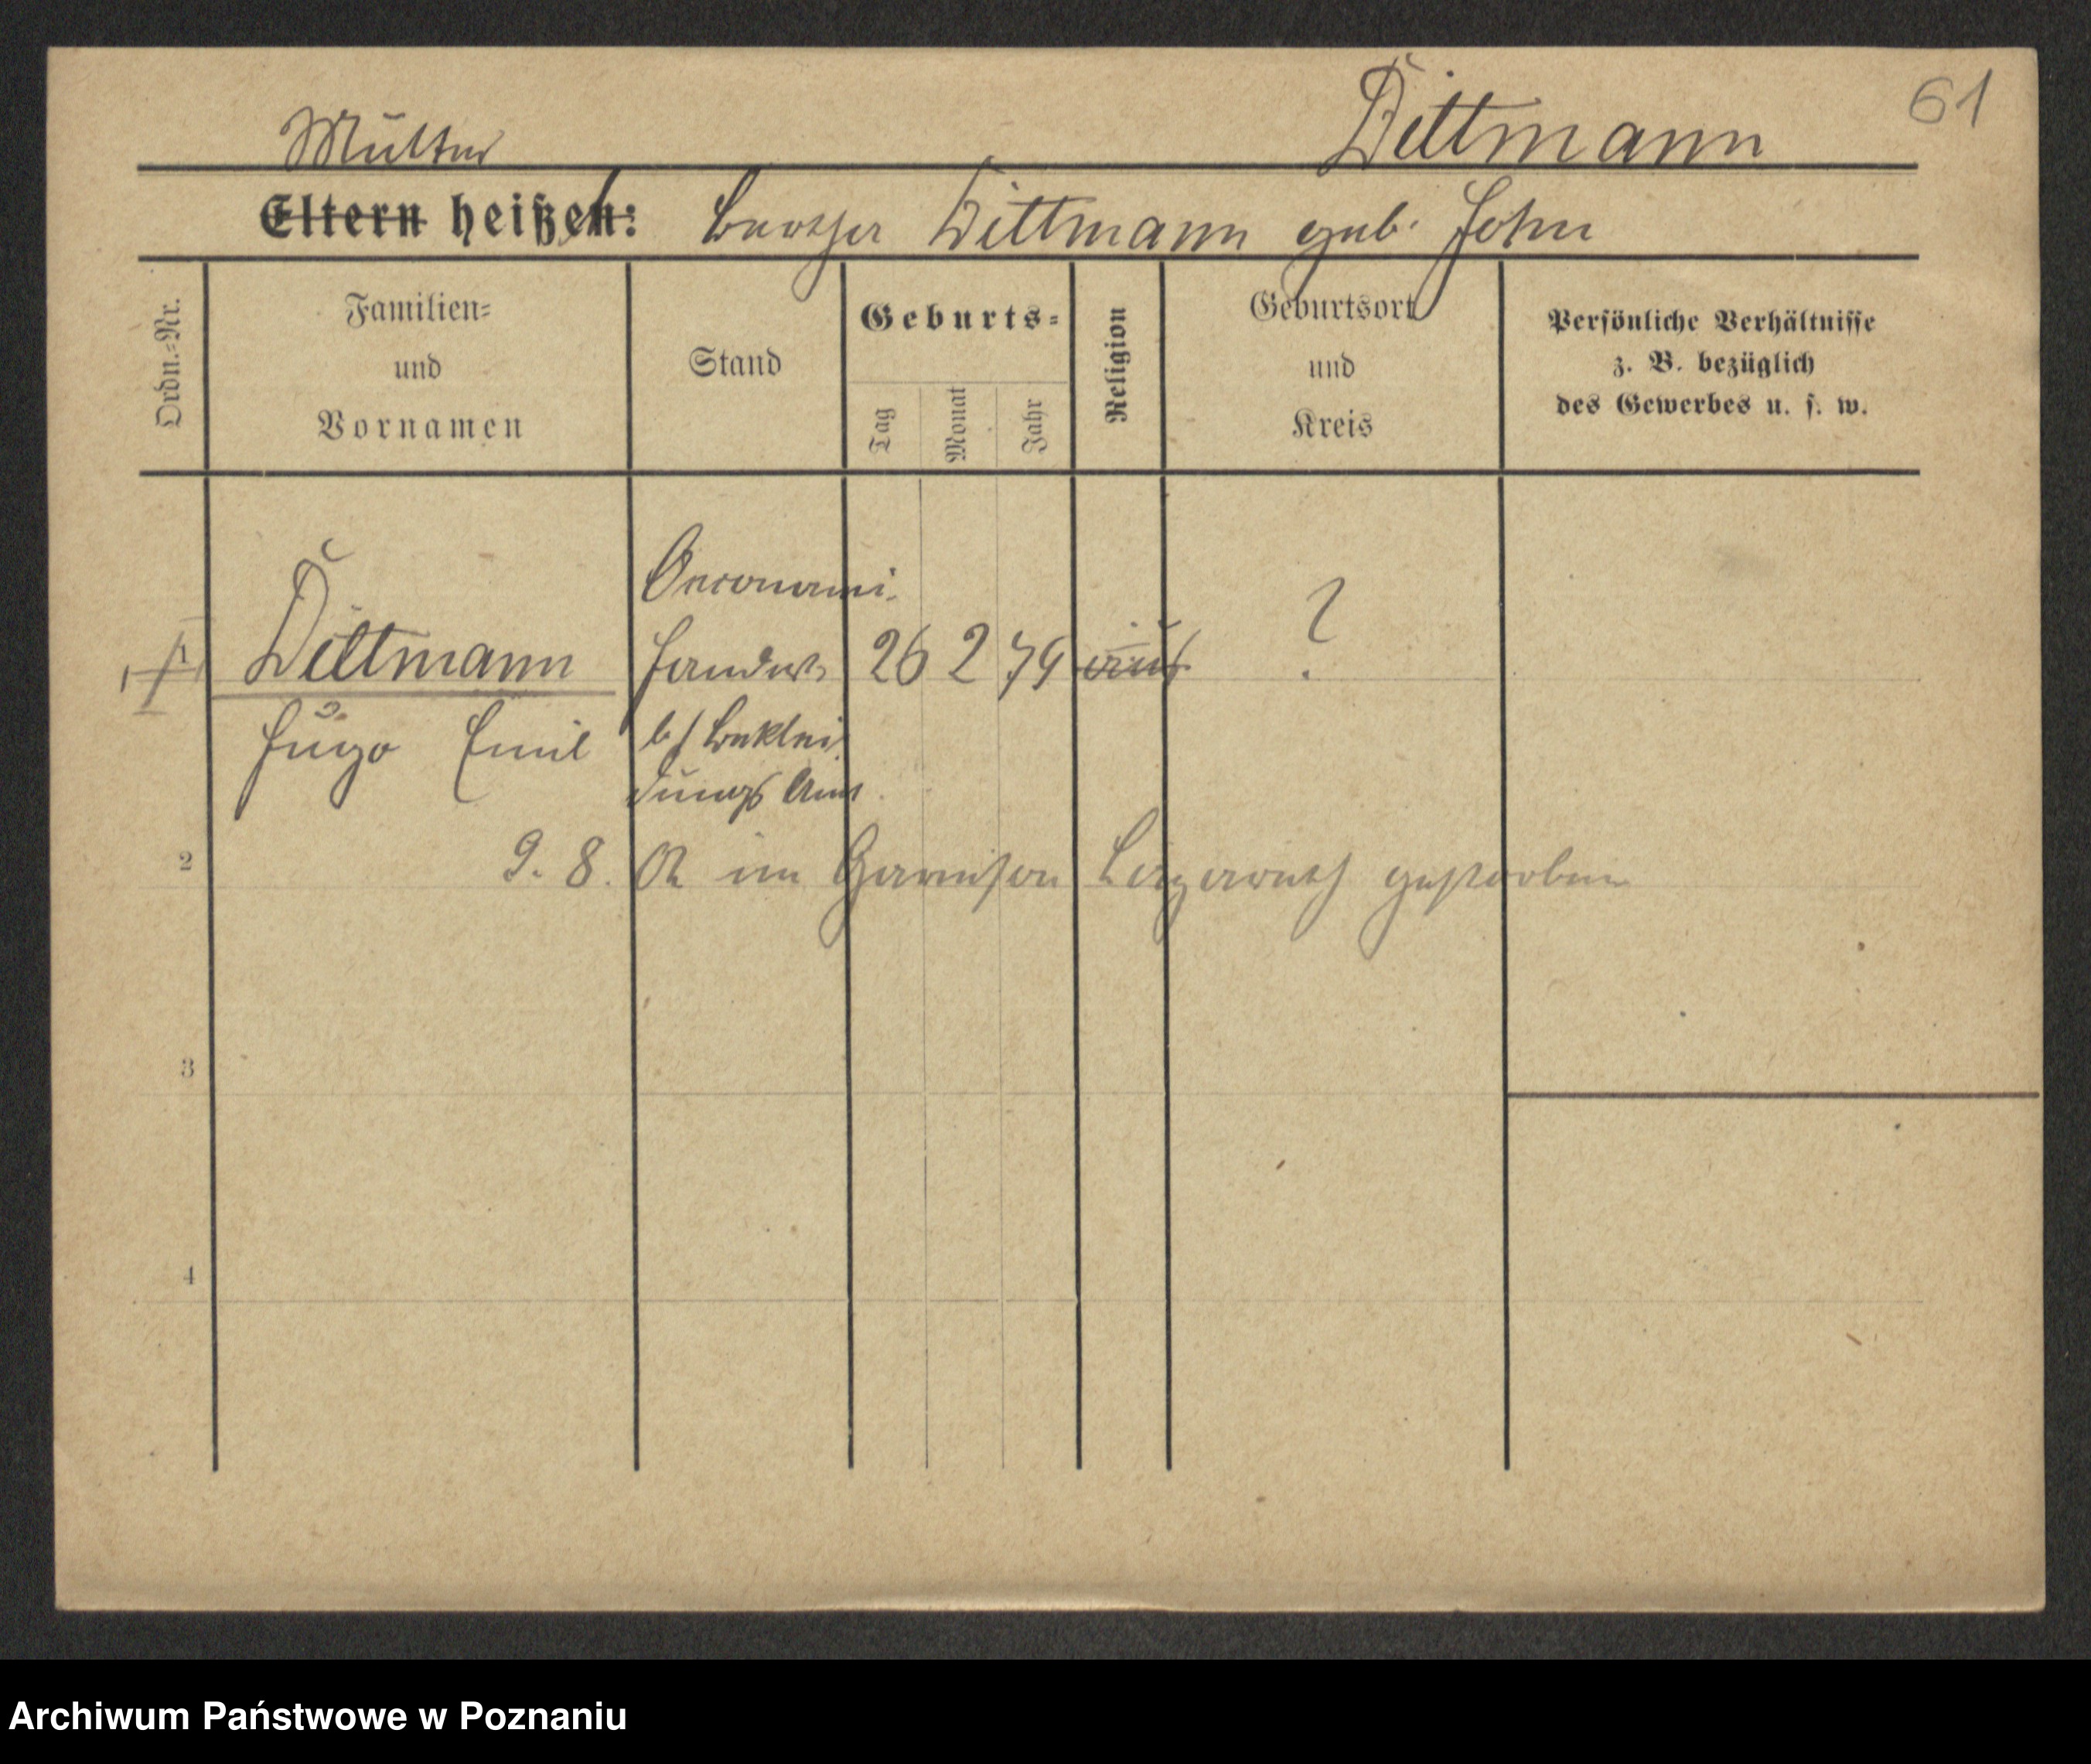 61
Mutter Dittmann
Eltern heißen: Bertha Dittmann geb. John
Ordn.-Nr.
Familien-
und
Vornamen
Stand
Geburts-
Tag
Monat
Jahr
Religion
Geburtsort
und
Kreis
Persönliche Verhältnisse
z. B. bezüglich
des Gewerbes u. s. w.
Oeconomie
1 Dittmann Handw. 26 2 79 ?
Hugo Emil b/ Beklei
dungs Amt
2 9. 8. 02 im Garnison Lazareth gestorben
3
4
Archiwum Państwowe w Poznaniu